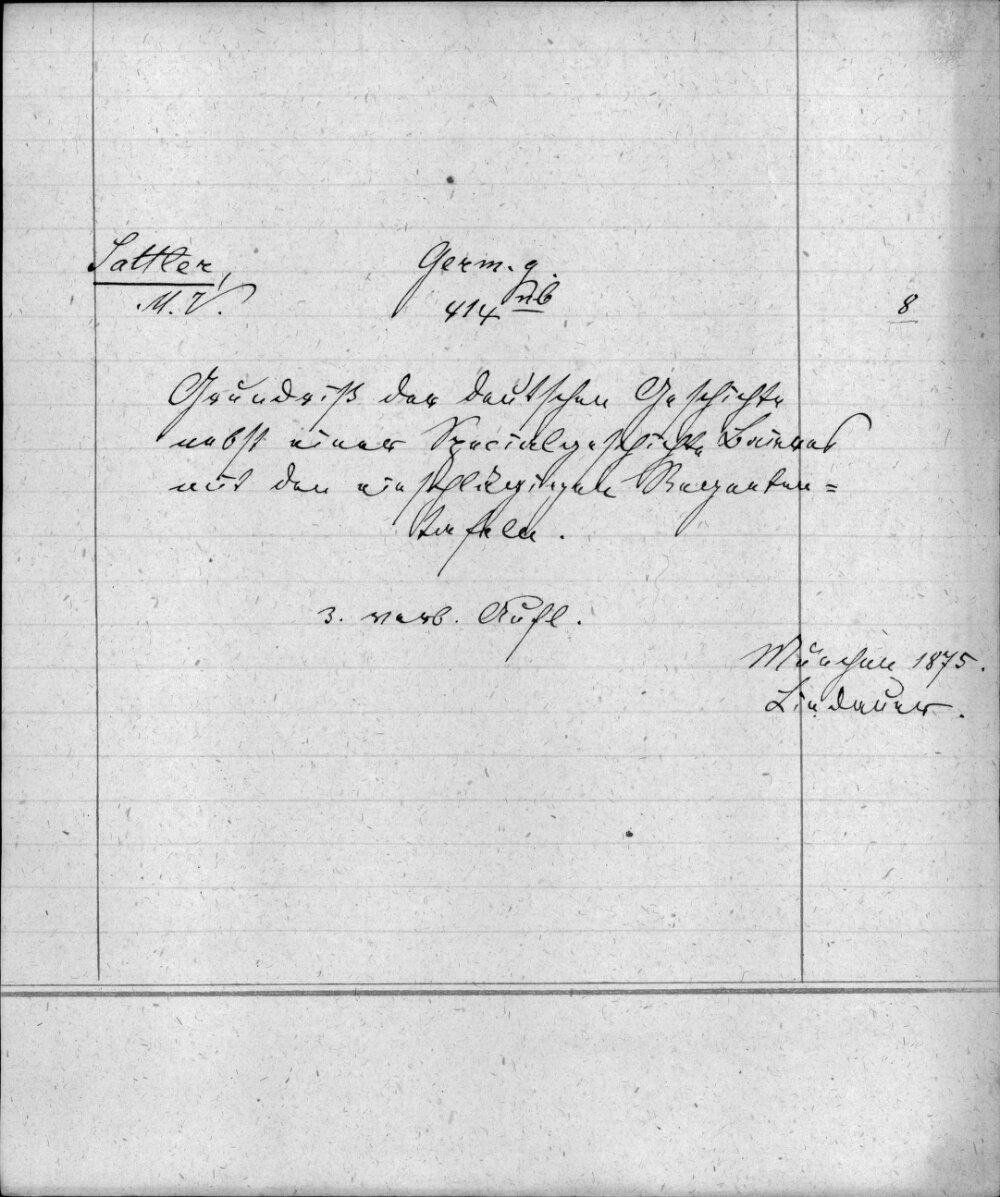 Sattler, Germ. g.
M. V. 414 nb 8
Grundriß der deutschen Geschichte
nebst einer Specialgeschichte Baierns
mit den einschlägigen Regenten=
tafeln.
3. verb. Aufl.
München 1875.
Lindauer.